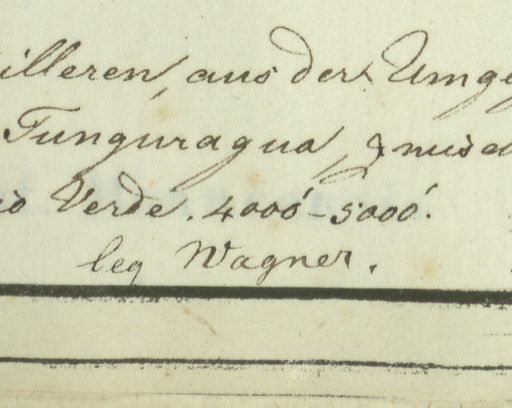 illeren, aus der Umge
Tunguragua,
io Verde. 4000'-5000'.
leg Wagner.